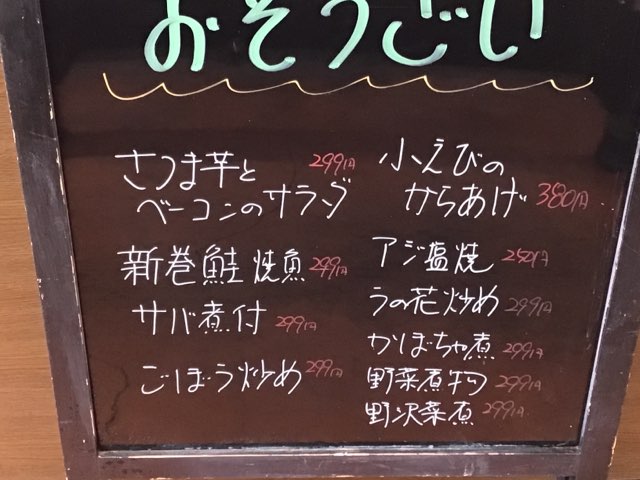 おそうざい
さつま芋と 299円
ベーコンのサラダ
新巻鮭 焼魚 299円
サバ煮付 299円
ごぼう炒め 299円
小えびの
からあげ 380円
アジ塩焼
うの花炒め 299円
かぼちゃ煮 299円
野菜煮物 299円
野沢菜煮 299円